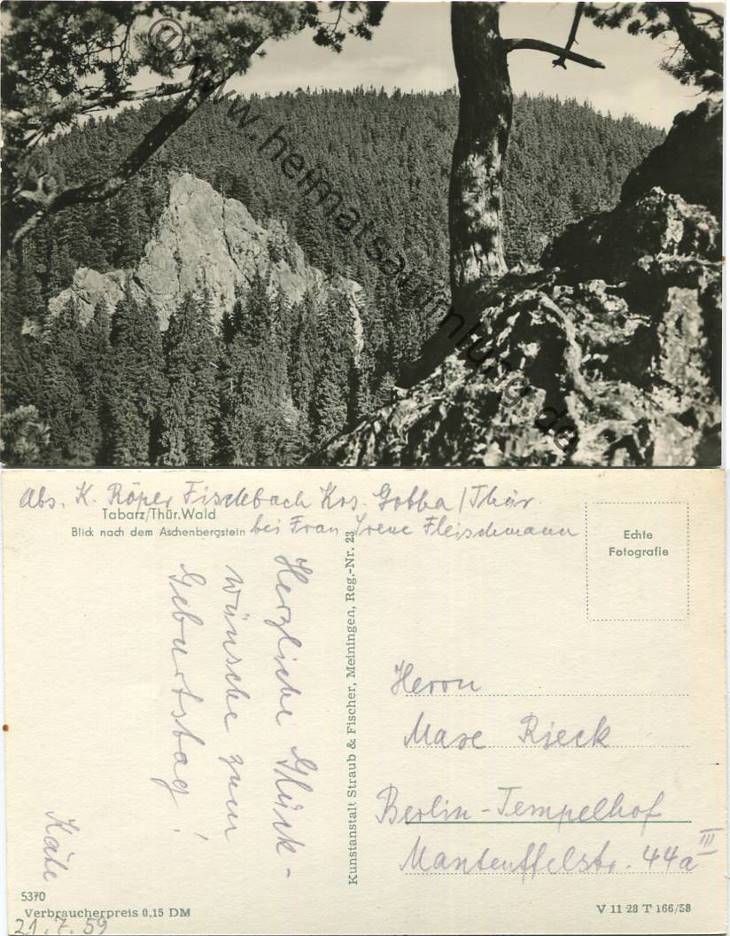 © www.heimatsammlung.de
Abs. K. Röper Fischbach Krs. Gotha/Thür.
bei Frau Irene Fleischmann
Tabarz/Thür.Wald
Blick nach dem Aschenbergstein
Echte
Fotografie
Herzliche Glück-
wünsche zum
Geburtstag!
Käte
Kunstanstalt Straub & Fischer, Meiningen, Reg.-Nr. 23
Herrn
Max Rieck
Berlin-Tempelhof
Manteuffelstr. 44a III
5370
Verbraucherpreis 0,15 DM
21.7.59
V 11 28 T 166/58